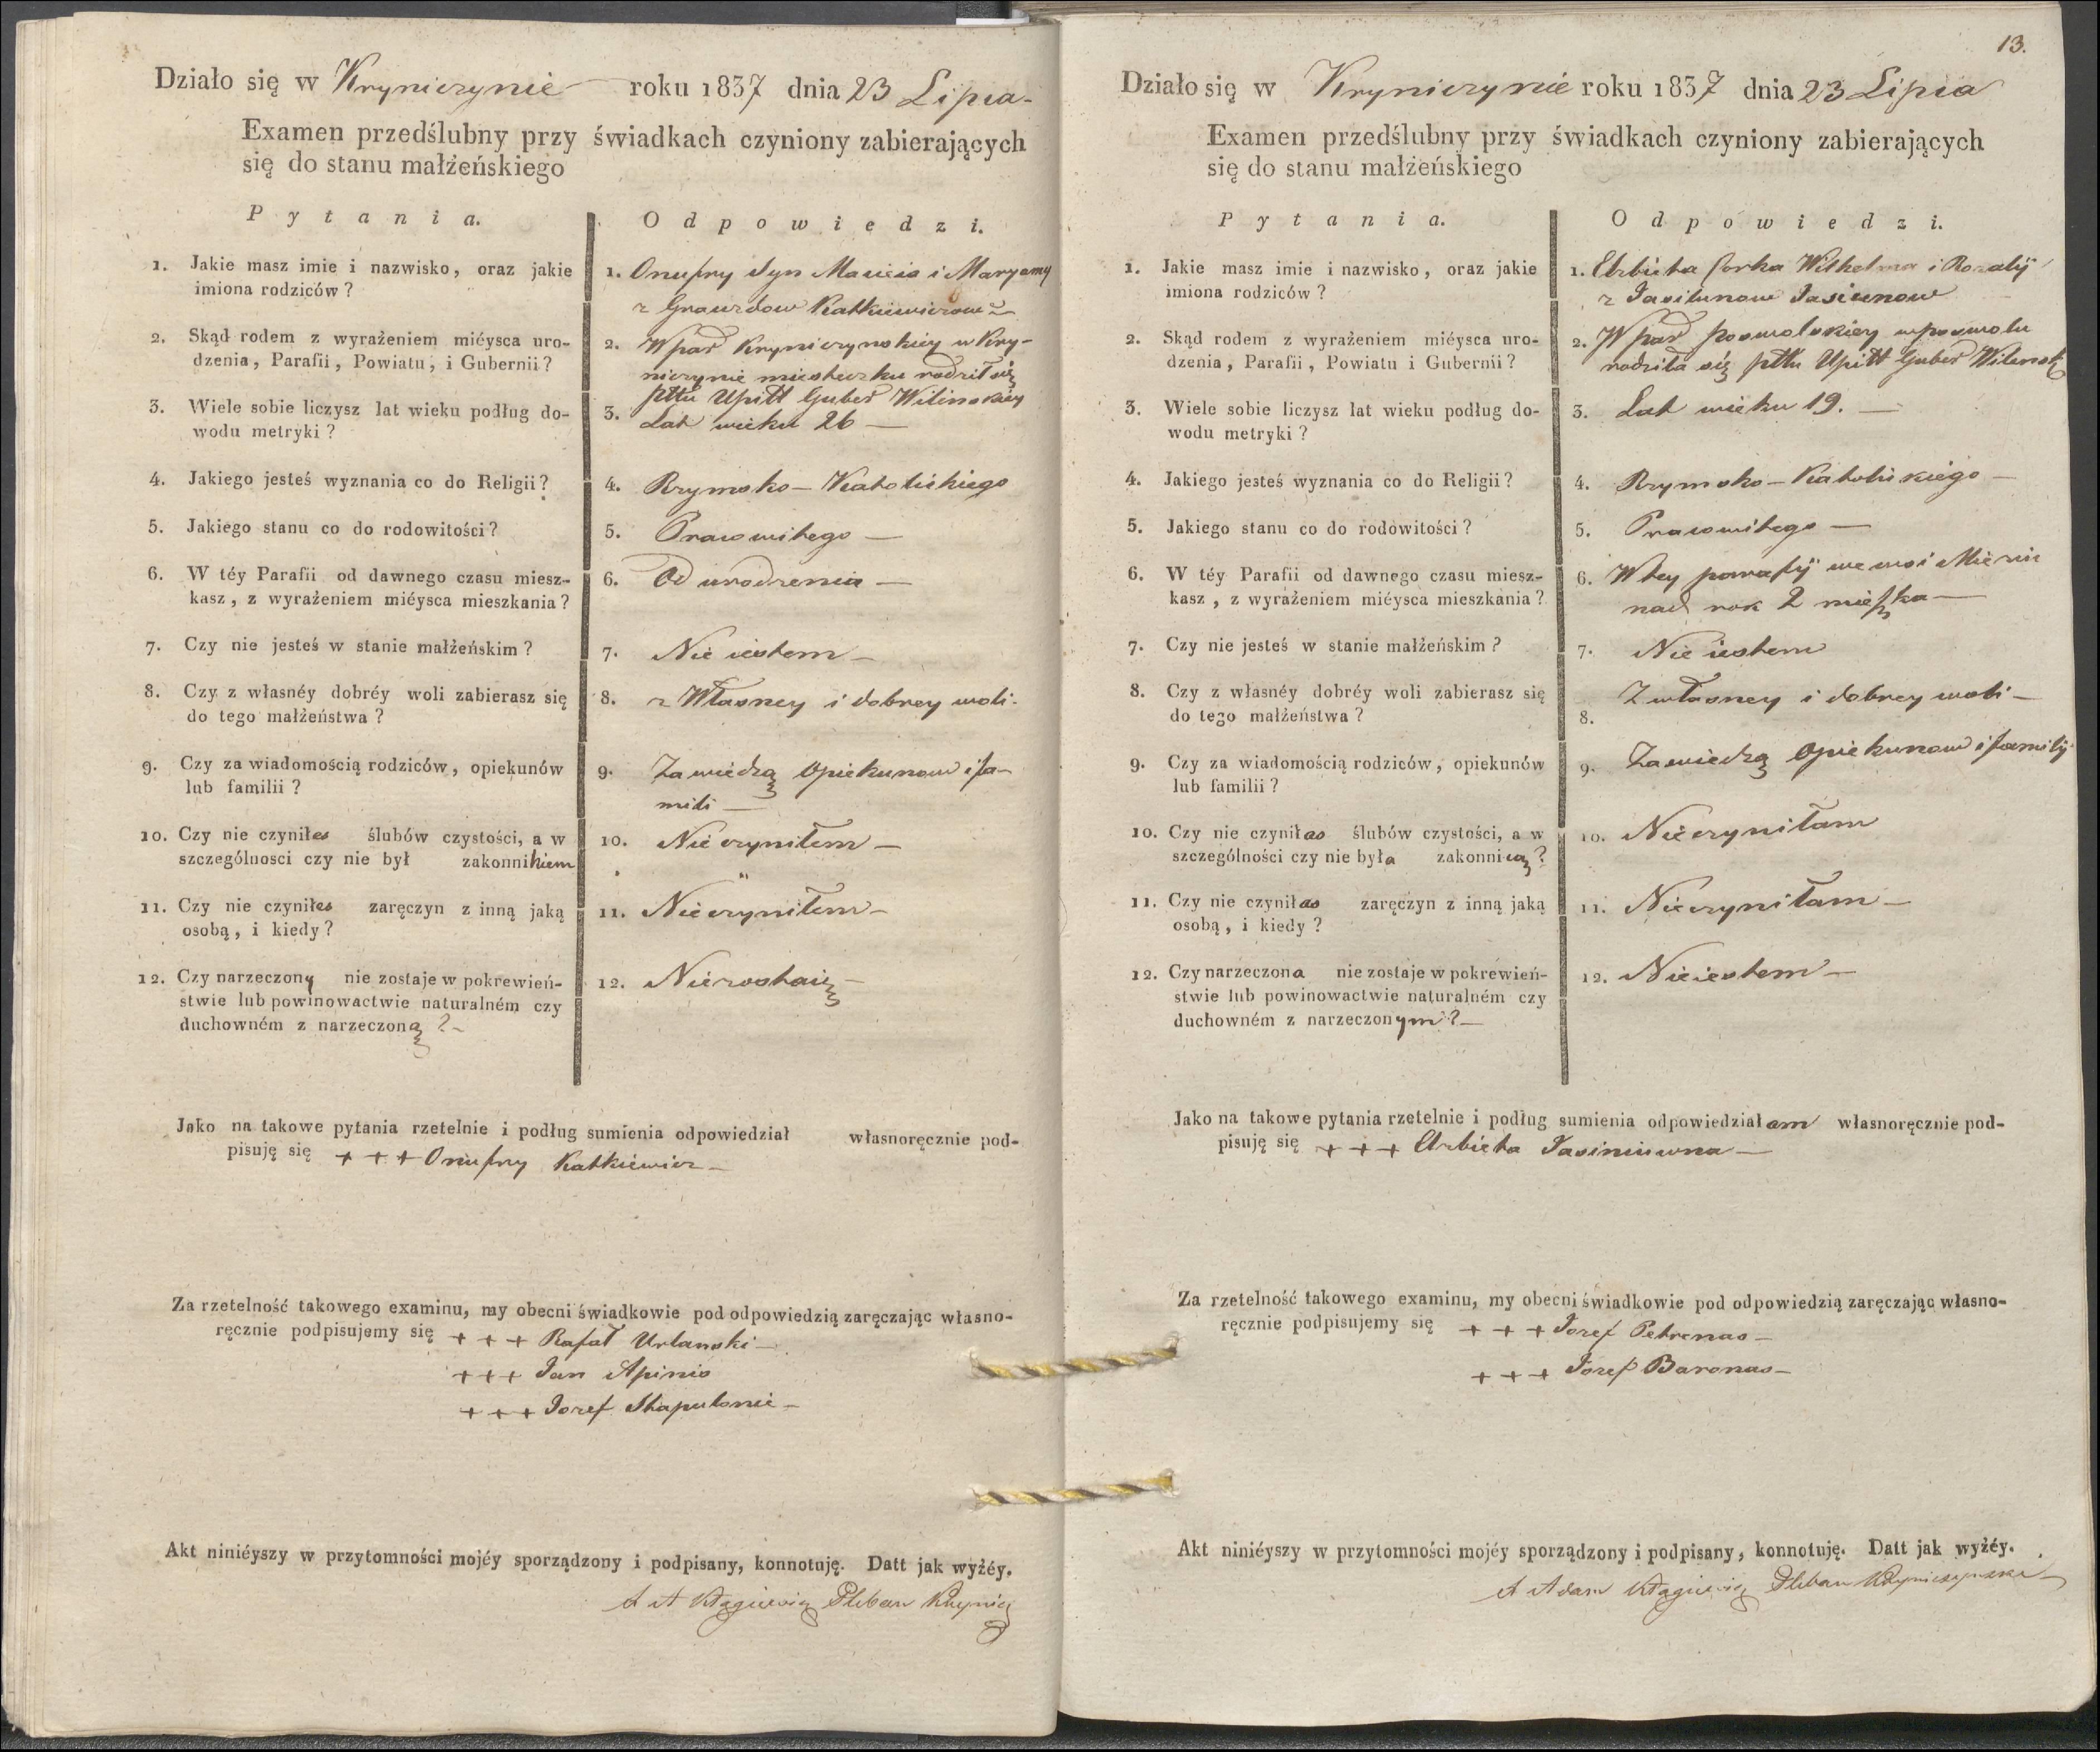 Działo się w Kryniczynie roku 1837 dnia 23 Lipca
Examen przedślubny przy świadkach czyniony zabierających
się do stanu małżeńskiego
Pytania.
Odpowiedzi.
1. Jakie masz imie i nazwisko, oraz jakie
imiona rodziców?
1. Onufry Syn Macieia i Maryanny
z Grauzdow Katkiewiczow
2. Skąd rodem z wyrażeniem miéysca uro-
dzenia, Parafii, Powiatu, i Gubernii?
2. W par Kryniczynskiey w Kry-
niczynie miasteczku rodził się
pttu Upitt Guber Wilenskiey
3. Wiele sobie liczysz lat wieku podług do-
wodu metryki?
3. Lat wieku 26 —
4. Jakiego jesteś wyznania co do Religii?
4. Rzymsko - Katolickiego
5. Jakiego stanu co do rodowitości?
5. Pracowitego —
6. W téy Parafii od dawnego czasu miesz-
kasz, z wyrażeniem miéysca mieszkania?
6. Od urodzenia —
7. Czy nie jesteś w stanie małżeńskim?
7. Nie iestem —
8. Czy z własnéy dobréy woli zabierasz się
do tego małżeństwa?
8. z Własney i dobrey woli.
9. Czy za wiadomością rodziców, opiekunów
lub familii?
9. Za wiedzą Opiekunow i fa-
mili —
10. Czy nie czyniłes ślubów czystości, a w
szczególnosci czy nie był zakonnikiem
10. Nie czyniłem —
11. Czy nie czyniłes zaręczyn z inną jaką
osobą, i kiedy?
11. Nie czyniłem —
12. Czy narzeczony nie zostaje w pokrewień-
stwie lub powinowactwie naturalném czy
duchowném z narzeczoną?-
12. Nie zostaię —
Jako na takowe pytania rzetelnie i podług sumienia odpowiedział własnoręcznie pod-
pisuję się + + + Onufry Katkiewicz —
Za rzetelność takowego examinu, my obecni świadkowie pod odpowiedzią zaręczając własno-
ręcznie podpisujemy się + + + Rafał Urlanski —
+ + + Jan Apinis
+ + + Jozef Skapulonie —
Akt niniéyszy w przytomności mojéy sporządzony i podpisany, konnotuję. Datt jak wyżéy.
Pleban
13.
Działo się w Kryniczynie roku 1837 dnia 23 Lipca
Examen przedślubny przy świadkach czyniony zabierających
się do stanu małżeńskiego
Pytania.
Odpowiedzi.
1. Jakie masz imie i nazwisko, oraz jakie
imiona rodziców?
1. Elzbieta Corka Wilhelma i Rozalij
z Jasiunow
2. Skąd rodem z wyrażeniem miéysca uro-
dzenia, Parafii, Powiatu i Gubernii?
2. W par Poswolskiey w poswolu
rodziła się pttu Upitt Guber Wilensk
3. Wiele sobie liczysz lat wieku podług do-
wodu metryki?
3. Lat wieku 19. —
4. Jakiego jesteś wyznania co do Religii?
4. Rzymsko - Katolickiego —
5. Jakiego stanu co do rodowitości?
5. Pracowitego —
6. W téy Parafii od dawnego czasu miesz-
kasz, z wyrażeniem miéysca mieszkania?
6. W tey parafij we wsi
nad rok 2 mieszka —
7. Czy nie jesteś w stanie małżeńskim?
7. Nie iestem
8. Czy z własnéy dobréy woli zabierasz się
do tego małżeństwa?
8. Z własney i dobrey woli —
9. Czy za wiadomością rodziców, opiekunów
lub familii?
9. Za wiedzą Opiekunow i familij
10. Czy nie czyniłas ślubów czystości, a w
szczególności czy nie była zakonnicą?
10. Nie czyniłam
11. Czy nie czyniłas zaręczyn z inną jaką
osobą, i kiedy?
11. Nie czyniłam —
12. Czy narzeczona nie zostaje w pokrewień-
stwie lub powinowactwie naturalném czy
duchowném z narzeczonym? —
12. Nie iestem —
Jako na takowe pytania rzetelnie i podług sumienia odpowiedziałam własnoręcznie pod-
pisuję się + + + Elzbieta Jasiniuwna —
Za rzetelność takowego examinu, my obecni świadkowie pod odpowiedzią zaręczając własno-
ręcznie podpisujemy się + + + Jozef Petrenas —
+ + + Jozef Baronas —
Akt niniéyszy w przytomności mojéy sporządzony i podpisany, konnotuję. Datt jak wyżéy.
Adam Pleban Kryniczynski